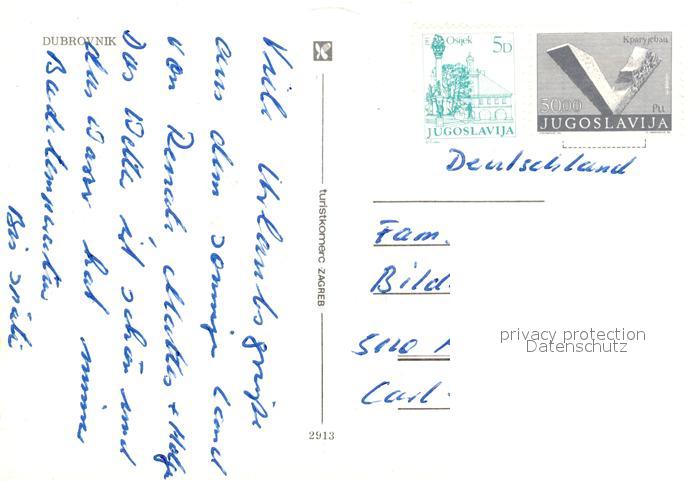 DUBROVNIK
Viele Urlaubsgrüße
aus dem sonnigen Land
von Renate Mattes + Holger
Das Wetter ist schön und
das Wasser hat immer
Badetemperatur
Bis später
turistkomerc ZAGREB
2913
Osijek 5D
JUGOSLAVIJA
Крагујевац
5000 Рп
JUGOSLAVIJA
Deutschland
Fam.
Bild
5110
Carl
privacy protection
Datenschutz